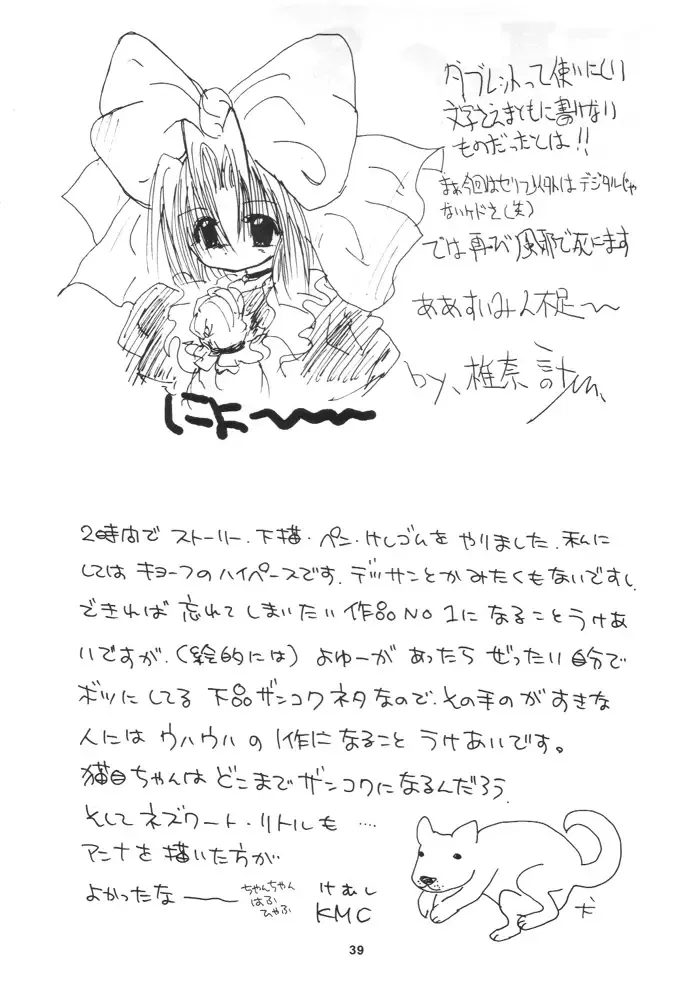 タブレットって使いにくい
文字さえまともに書けない
ものだったとは!!
まぁ今回はセリフ以外はデジタルじゃ
ないケドさ(笑)
では再び風邪で死にます
ああすいみん不足〜〜
by、椎奈
にょ〜〜〜
2時間で ストーリー、下描・ペン・けしゴムを やりました。私に
しては キョーフのハイペースです。デッサンとかみたくもないですし、
できれば 忘れて しまいたい 作品NO1に なること うけあ
いですが、(絵的には) よゆーが あったら ぜったい 自分で
ボツに してる 下品ザンコクネタなので、その手のがすきな
人には ウハウハ の 1作に なること うけあいです。
猫目ちゃんは どこまで ザンコクに なるんだろう。
そして ネズワート・リトルも ……
アンナを 描いた方が
よかったな〜〜
ちゃんちゃん
はふ
ひゃふ
けむし
KMC
犬
39